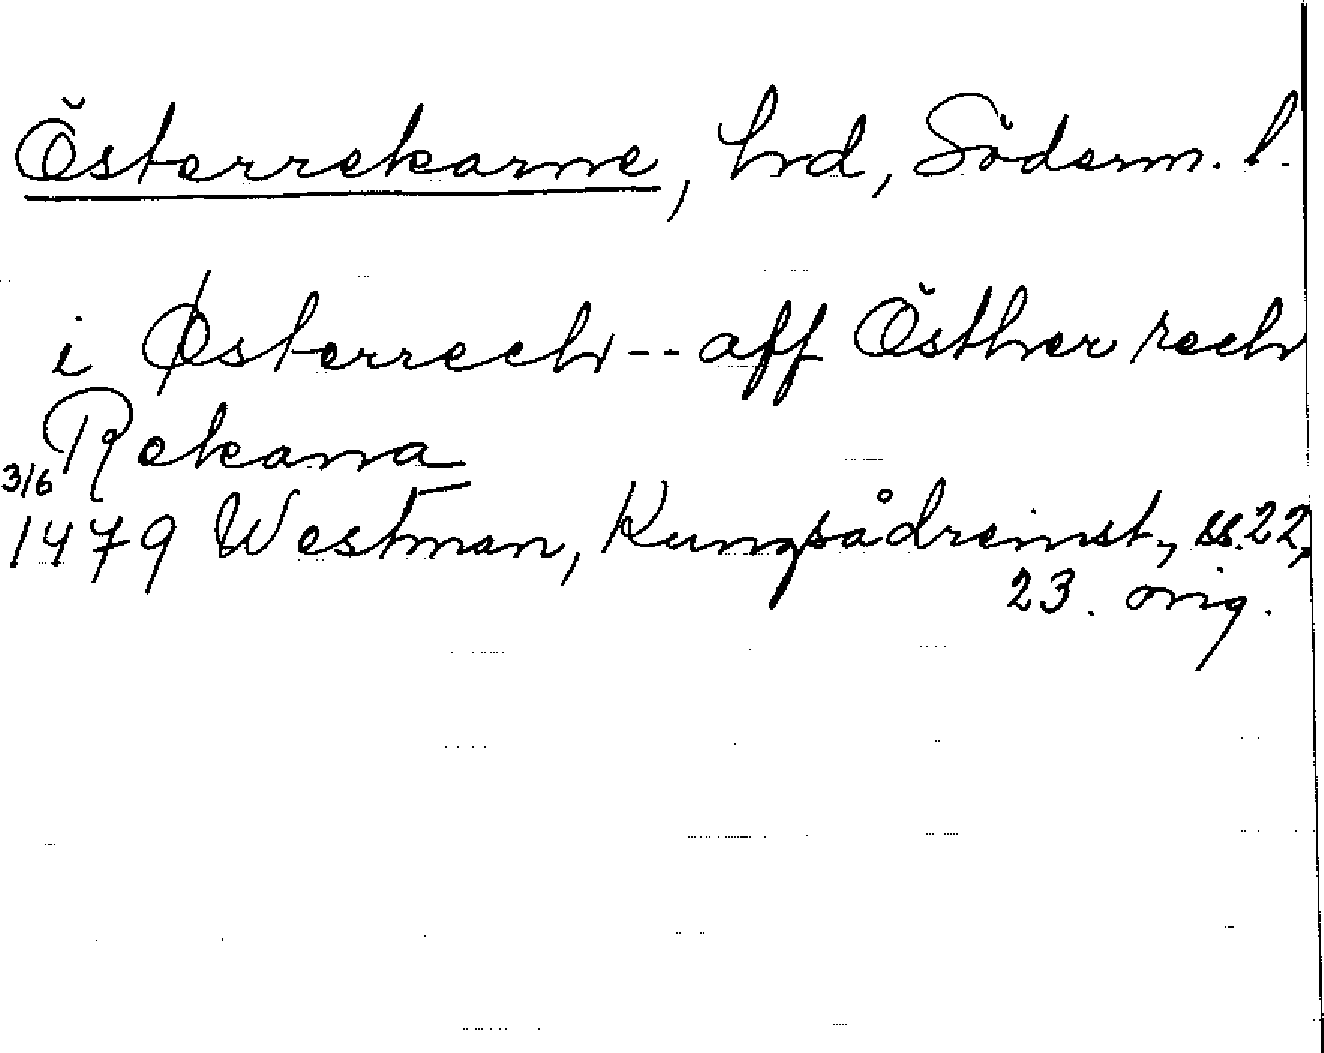 Österrekarne, hrd, Söderm. l.
i Østerrech -- aff Östher rech
Rekarna
3/6
1479 Westman, Kungsådreinst, ss. 22,
23. orig.